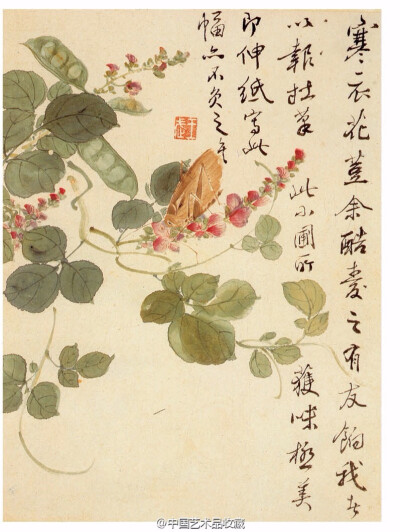 寒衣花荳余酷愛之有友餉我
此小圃所
獲味極美
以報拙筆
即伸紙寫此
幅亦不負之
@中国艺术品收藏